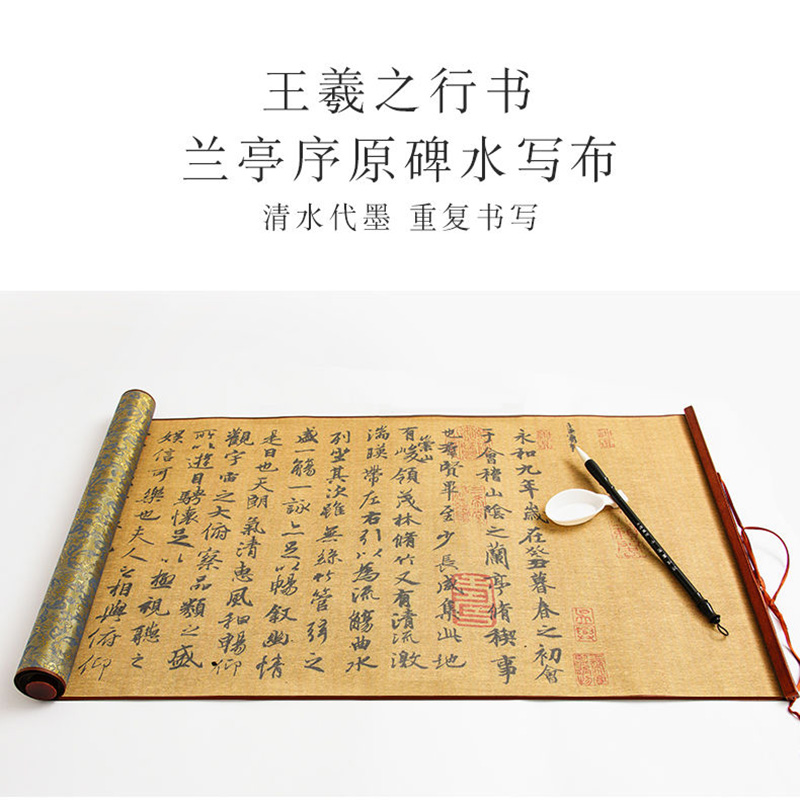 王羲之行书
兰亭序原碑水写布
清水代墨 重复书写
永和九年歲在癸丑暮春之初會
于會稽山陰之蘭亭脩稧事
也羣賢畢至少長咸集此地
崇山
有峻領茂林脩竹又有清流激
湍暎帶左右引以為流觴曲水
列坐其次雖無絲竹管弦之
盛一觴一詠亦足以暢敘幽情
是日也天朗氣清惠風和暢仰
觀宇宙之大俯察品類之盛
所以遊目騁懷足以極視聽之
娛信可樂也夫人之相與俯仰